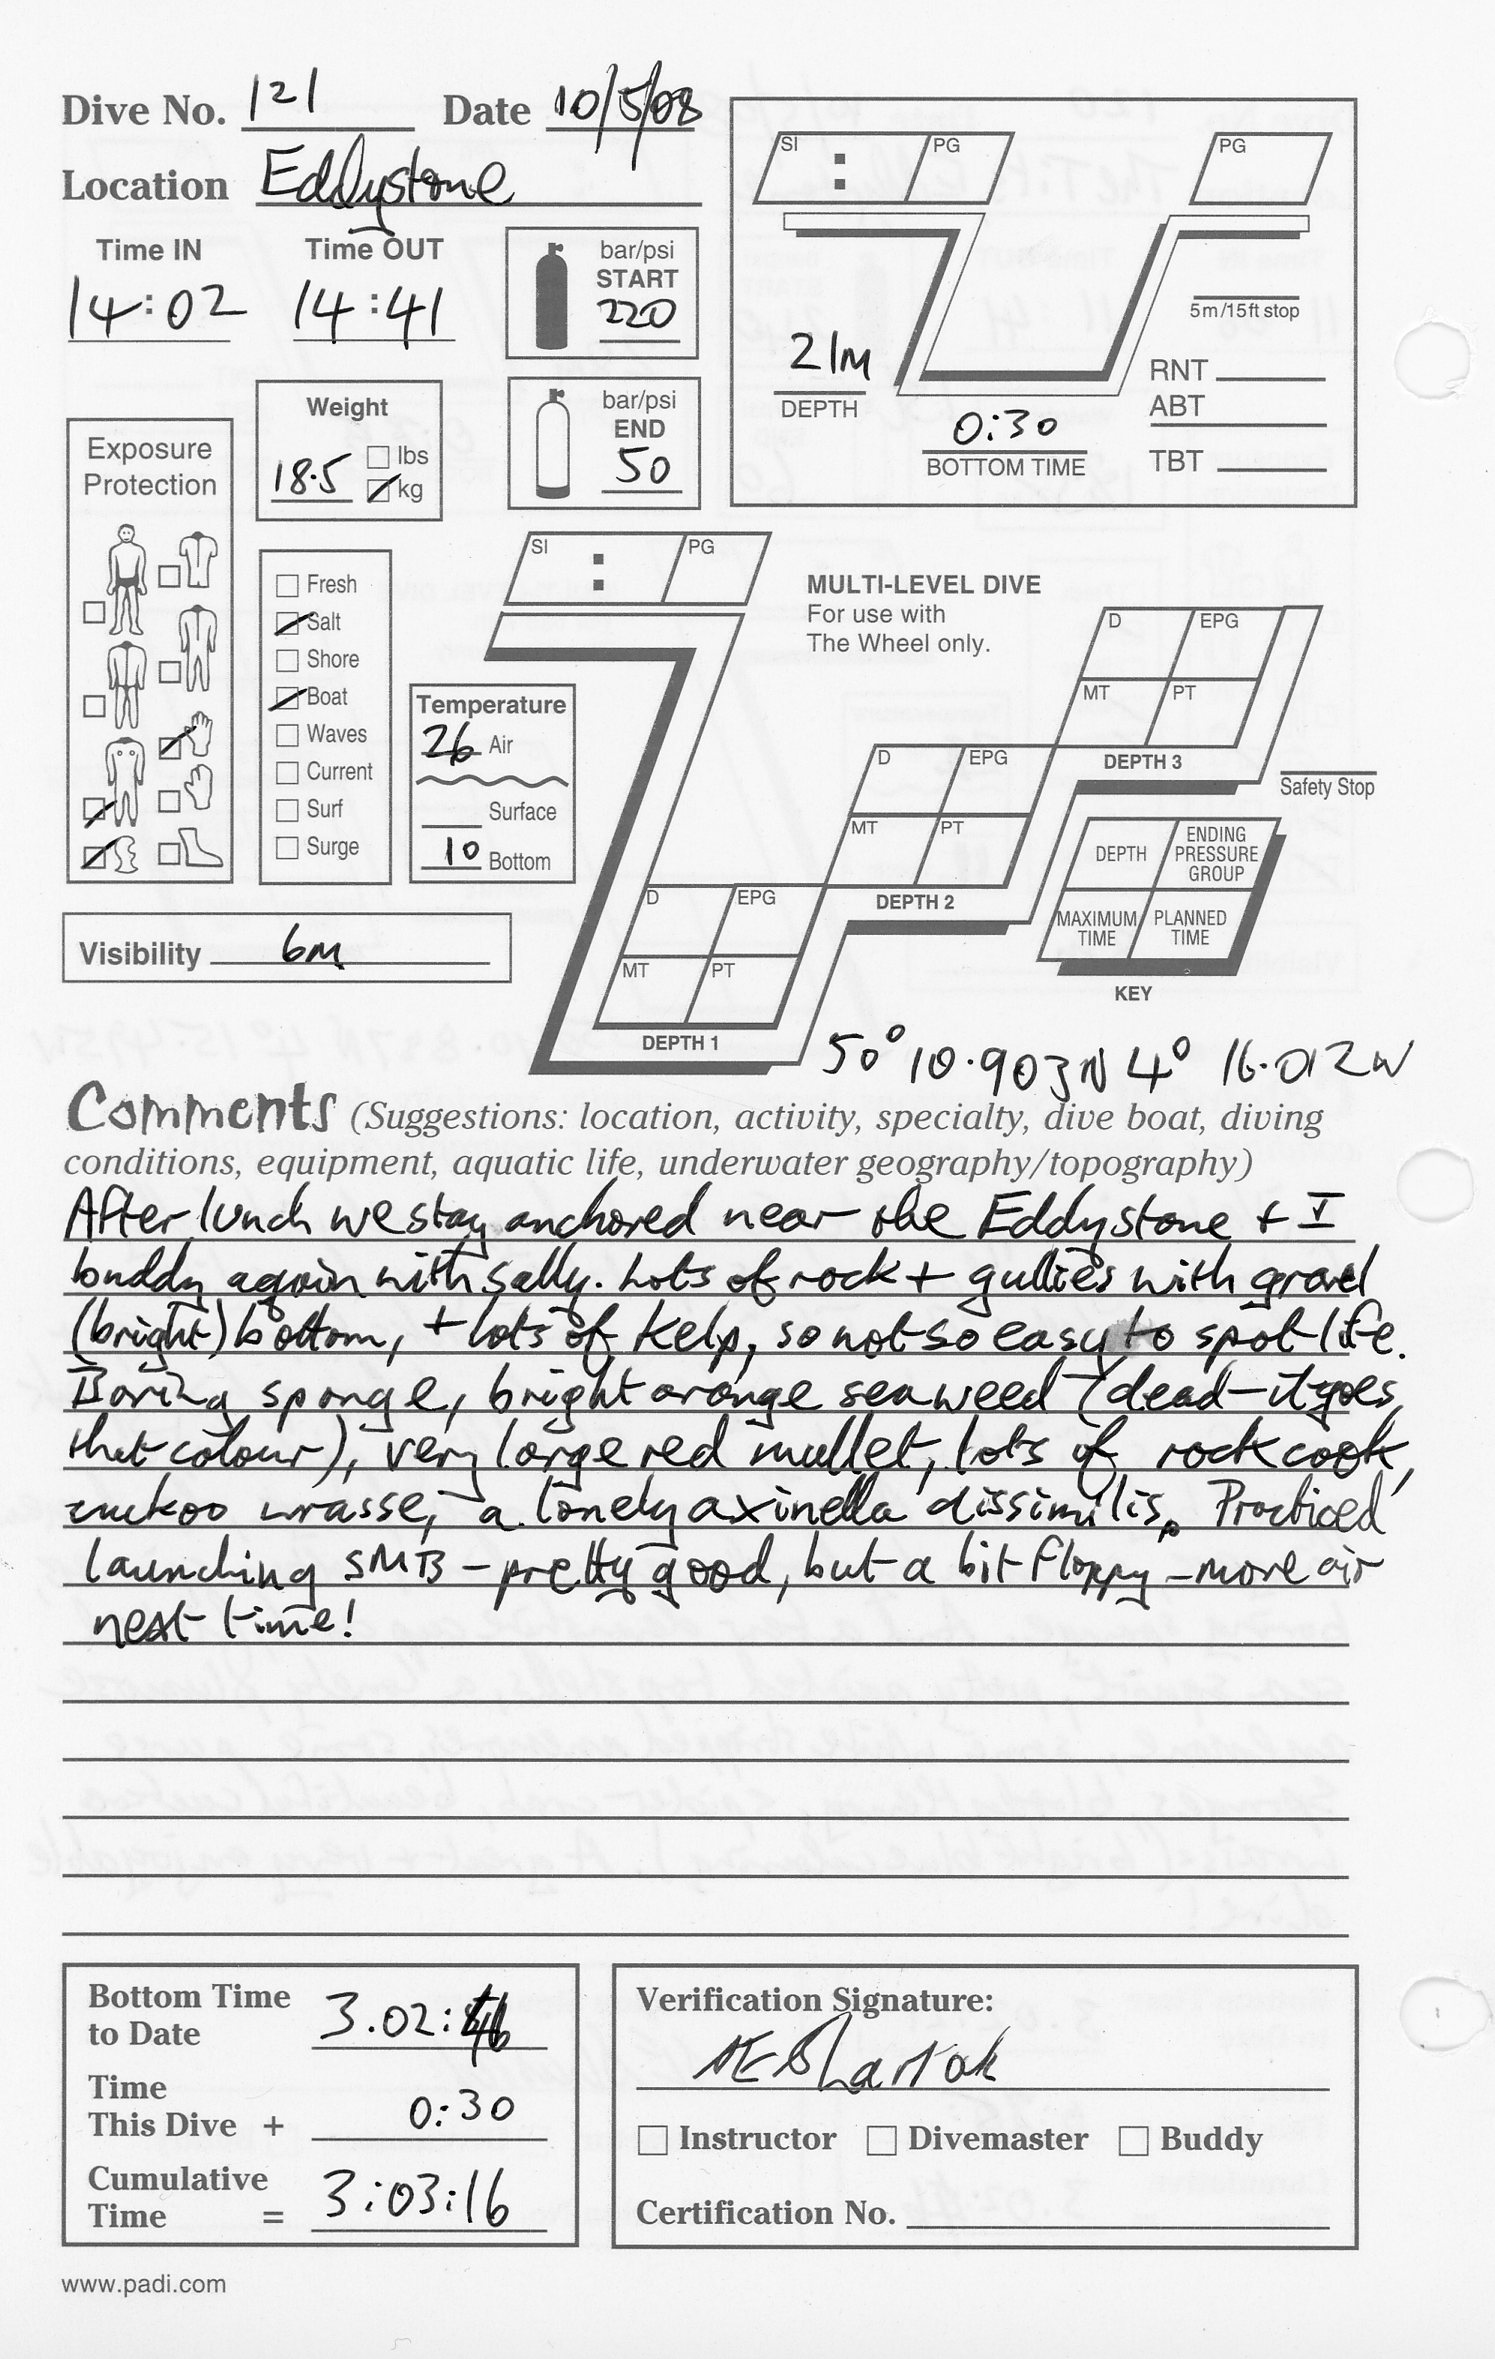 Dive No. 121 Date 10/5/08
Location Eddystone
Time IN Time OUT
14:02 14:41
bar/psi
START
220
bar/psi
END
50
Weight
18.5 lbs
kg
Exposure
Protection
Fresh
Salt
Shore
Boat
Waves
Current
Surf
Surge
Temperature
26 Air
Surface
10 Bottom
Visibility 6m
SI : PG PG
5m/15ft stop
21m
DEPTH
0:30
BOTTOM TIME
RNT
ABT
TBT
SI : PG
MULTI-LEVEL DIVE
For use with
The Wheel only.
D EPG
MT PT
DEPTH 3
Safety Stop
D EPG
MT PT
DEPTH 2
D EPG
MT PT
DEPTH 1
DEPTH ENDING PRESSURE GROUP
MAXIMUM TIME PLANNED TIME
KEY
50° 10.903N 4° 16.012W
Comments (Suggestions: location, activity, specialty, dive boat, diving
conditions, equipment, aquatic life, underwater geography/topography)
After lunch we stay anchored near the Eddystone + I
buddy again with Sally. Lots of rock + gullies with gravel
(bright) bottom, + lots of kelp, so not so easy to spot life.
Boring sponge, bright orange seaweed (dead - it goes
that colour), very large red mullet, lots of rock cook,
cuckoo wrasse, a lonely axinella dissimilis. Practiced
launching SMB - pretty good, but a bit floppy - more air
next time!
Bottom Time
to Date 3.02:46
Time
This Dive + 0:30
Cumulative
Time = 3:03:16
Verification Signature:
Instructor Divemaster Buddy
Certification No.
www.padi.com